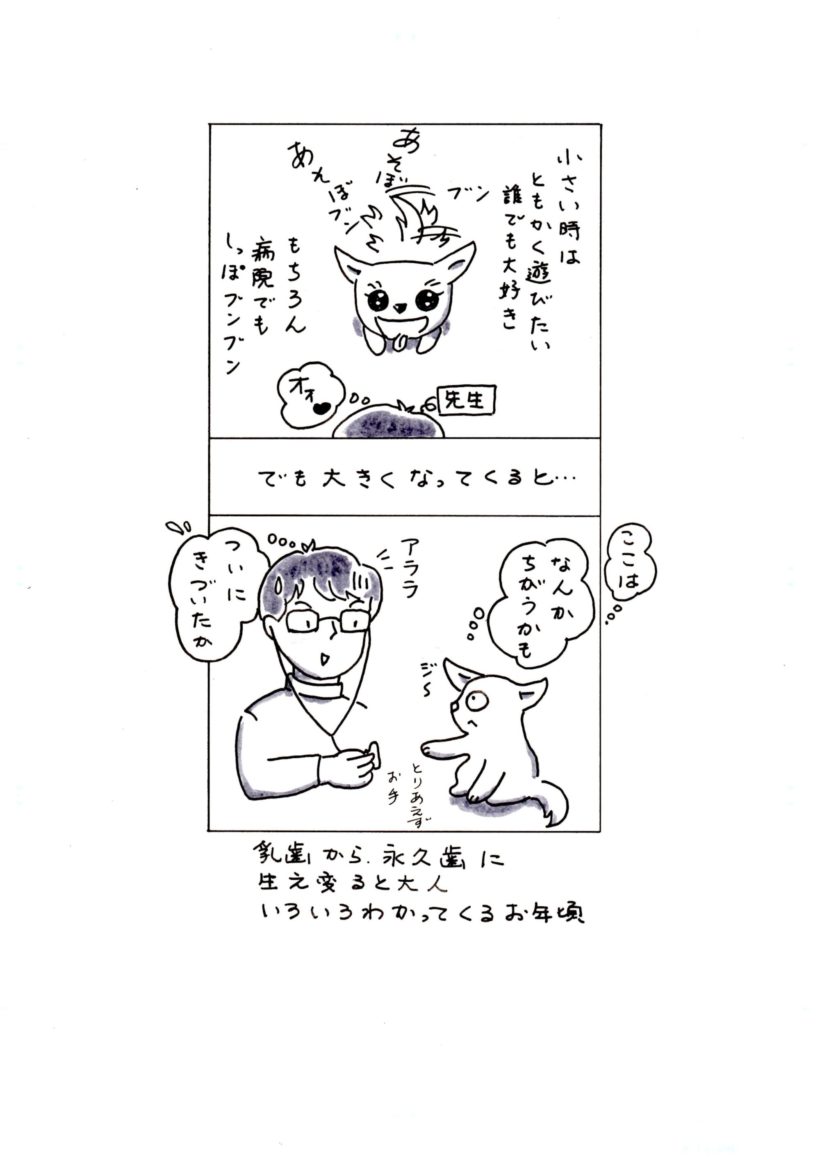 小さい時は
ともかく遊びたい
誰でも大好き
ブン
あそぼ
あそぼ
ブン
もちろん
病院でも
しっぽブンブン
オォ♥
先生
でも大きくなってくると…
ここは
なんか
ちがうかも
アララ
ついに
きづいたか
ジ〜
とりあえず
お手
乳歯から、永久歯に
生え変ると大人
いろいろわかってくるお年頃